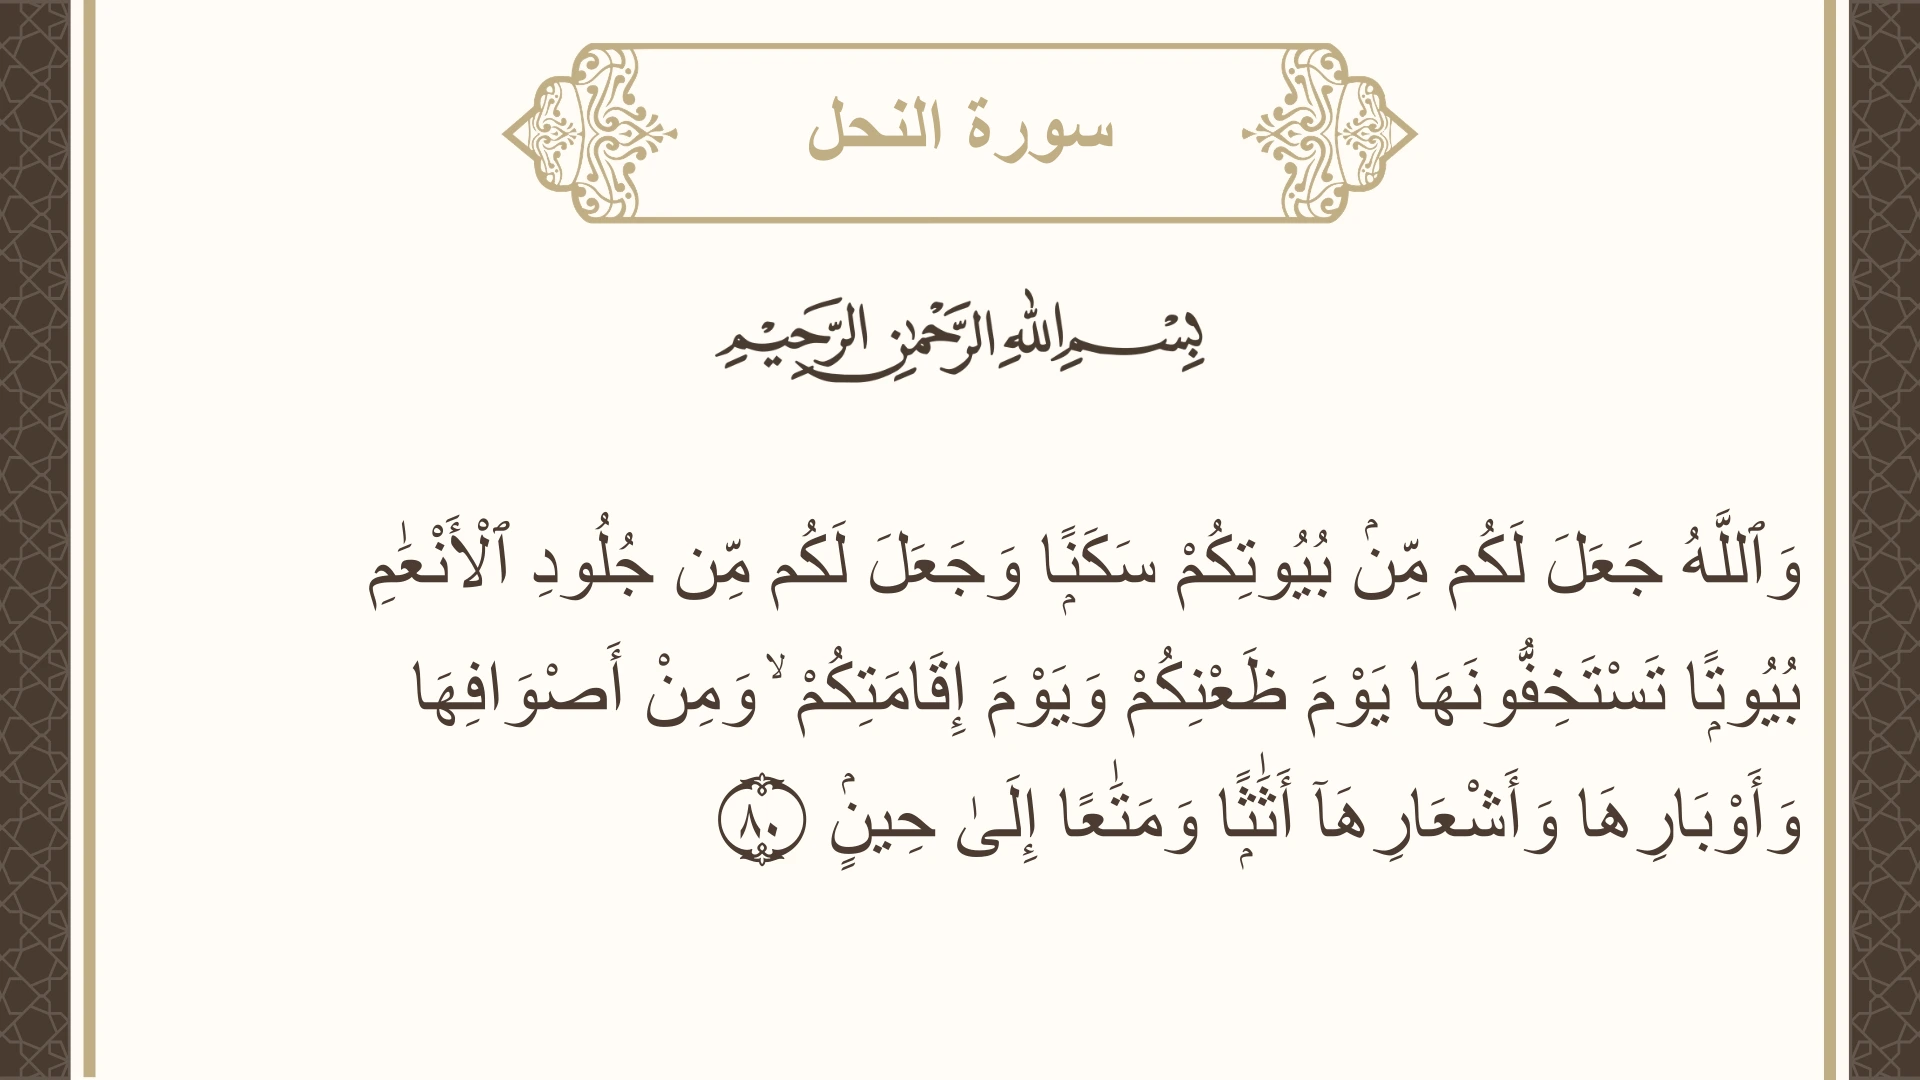 سورة النحل
بِسْمِ اللهِ الرَّحْمٰنِ الرَّحِيْمِ
وَٱللَّهُ جَعَلَ لَكُم مِّنۢ بُيُوتِكُمْ سَكَنًۭا وَجَعَلَ لَكُم مِّن جُلُودِ ٱلْأَنْعَٰمِ
بُيُوتًۭا تَسْتَخِفُّونَهَا يَوْمَ ظَعْنِكُمْ وَيَوْمَ إِقَامَتِكُمْ ۙ وَمِنْ أَصْوَافِهَا
وَأَوْبَارِهَا وَأَشْعَارِهَآ أَثَٰثًۭا وَمَتَٰعًا إِلَىٰ حِينٍۢ ٨٠